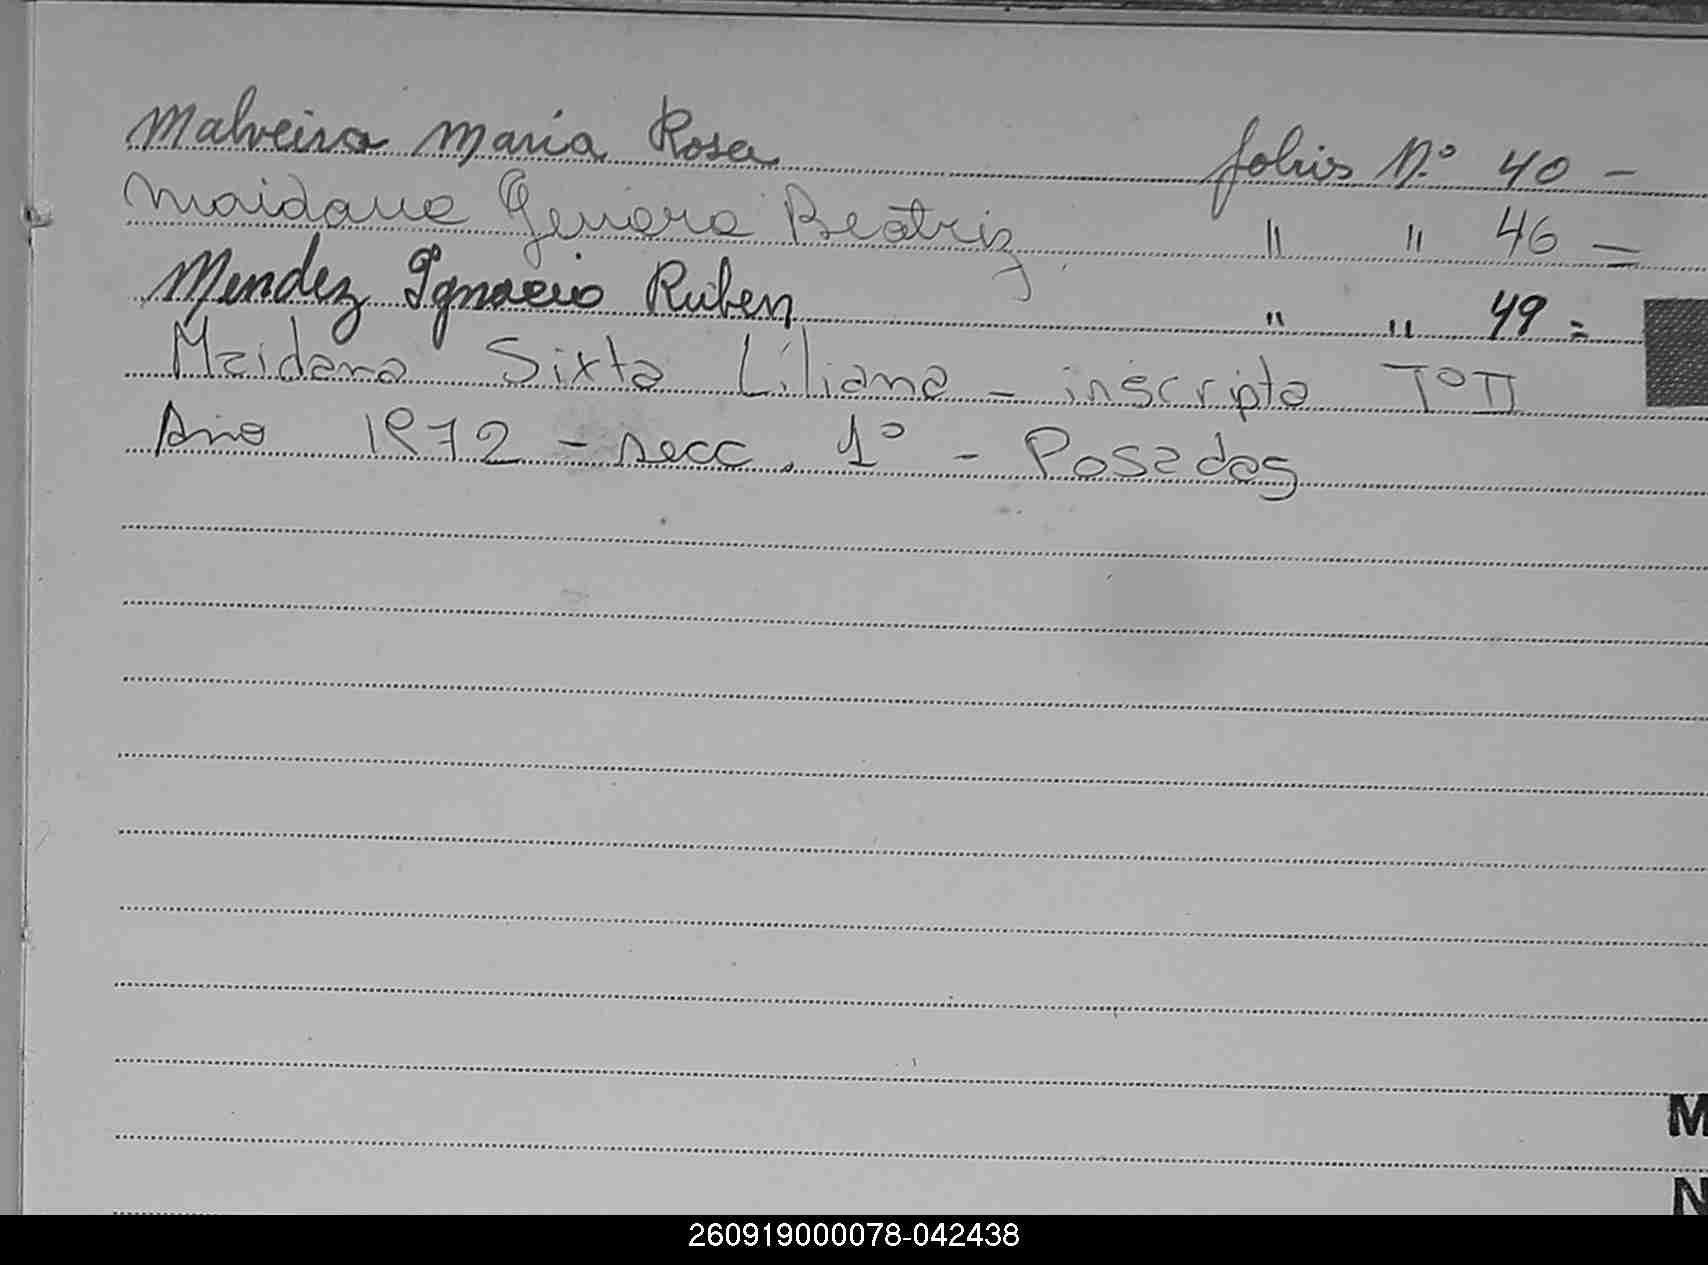 Malveira Maria Rosa folios N.º 40 -
Maidana Genara Beatriz " " 46 =
Mendez Ignacio Ruben " " 49 =
Maidana Sixta Liliana - inscripta Tº II
Año 1972 - secc. 1º - Posadas
M
N
260919000078-042438